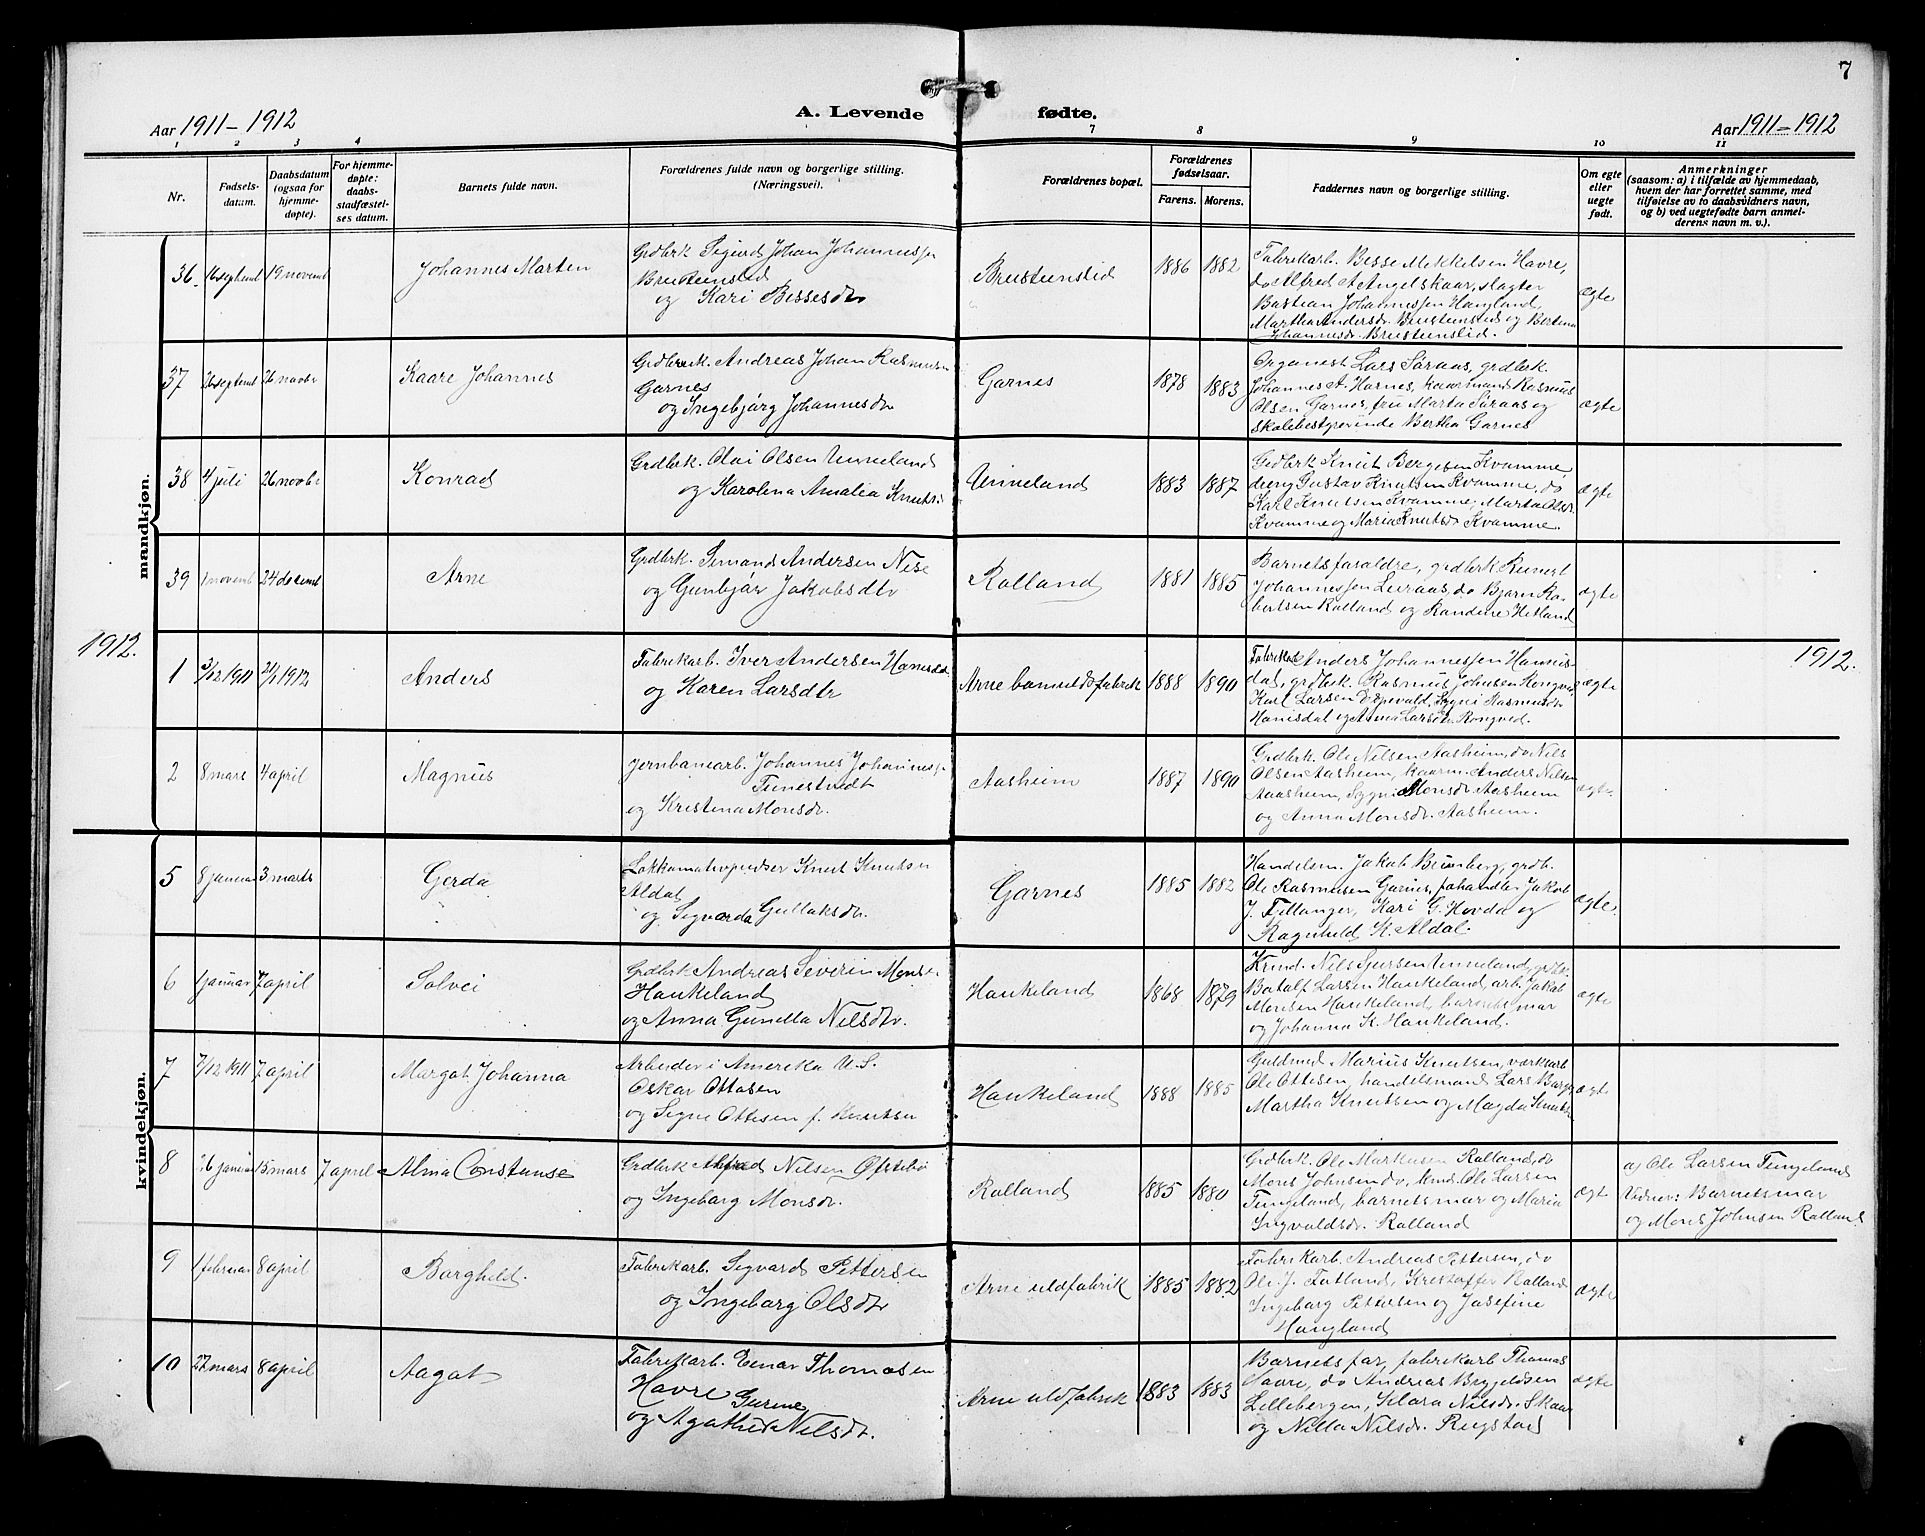 7
A. Levende fødte.
Aar 1911-1912
Aar 1911-1912
1 2 3 4 7 8 9 10 11
Nr.
Fødsels-
datum.
Daabsdatum
(ogsaa for
hjemme-
døpte).
For hjemme-
døpte:
daabs-
stadfæstel-
ses datum.
Barnets fulde navn.
Forældrenes fulde navn og borgerlige stilling.
(Næringsvei).
Forældrenes bopæl.
Forældrenes
fødselsaar.
Farens. Morens.
Faddernes navn og borgerlige stilling.
Om egte
eller
uegte
født.
Anmerkninger
(saasom: a) i tilfælde av hjemmedaab,
hvem der har forrettet samme, med
tilføielse av to daabsvidners navn,
og b) ved uegtefødte barn anmel-
derens navn m. v.).
mandkjøn.
36 septemb 19 novemb
Johannes Marten
Grdbrk Sigurd Johan Johannessen
Brusteinslid
og Kari Bessesdtr
Brusteinslid
1886 1882
Fabrikarb. Besse Mekkelsen Havre,
do Alfred A Angelskaar,
Bastian Johannessen Haugland
Martha Andersdr. Brusteinslid og Bertina
Johannesdr. Brusteinslid.
ægte
37 26 septemb 26 novbr
Kaare Johannes
Grdbruk. Andreas Johan Rasmussen
Garnes
og Ingebjørg Johannesdtr
Garnes
1878 1883
Organist Lars Søraas, grdbrk.
Johannes A. Harnes, kaarmand Rasmus
Olsen Garnes, fru Marta Søraas og
skolebestyrerinde Bertha Garnes
ægte
38 4 juli 26 novbr
Konrad
Grdbrk. Olai Olsen Unneland
og Karolina Amalia Knutsd
Unneland
1883 1887
Grdbrk Knut Bergesen Kvamme,
dreng Gustav Knutsen Kvamme, do
Karl Knutsen Kvamme, Marta Olsdr.
Kvamme og Maria Knutsdr Kvamme.
ægte
39 1 novemb 24 desemb
Arne
Grdbrk. Simand Andersen Nese
og Gunbjør Jakobsdtr
Ralland
1881 1885
Barnets foraldre, grdbrk Reinert
Johannessen Leiraas, do Bjørn Ro-
bertsen Ralland og Randine Hetland
ægte
1912.
1912.
1 3/12 1911 21/1 1912
Anders
Fabrikarb. Iver Andersen Hanisdal
og Karen Larsdtr
Arne bomuldsfabrik
1888 1890
Fabrikarb Anders Johannessen Hanis-
dal, grdbrk. Rasmus Johnsen Rongved,
Karl Larsen Espevold, Sygni Rasmusdr.
Hanisdal og Anna Larsdtr Rongved.
ægte
2 8 mars 4 april
Magnus
jernbanearb. Johannes Johannessen
Tunestvedt
og Kristina Monsdr.
Aasheim
1887 1890
Grdbrk. Ole Nilsen Aasheim, do Nils
Olsen Aasheim, kaarm. Anders Nilsen
Aasheim, Sygni Monsdr. Aasheim
og Anna Monsdr. Aasheim.
ægte
kvindekjøn.
5 8 januar 3 marts
Gerda
Lokkamotivpudser Knut Knutsen
Aldal
og Sigvarda Gullaksdr.
Garnes
1885 1882
Handelsm. Jakob Brunberg, grdb.
Ole Rasmussen Garnes, fehandler Jakob
J. Fjellanger, Kari G. Hovda og
Ragnhild K. Aldal.
ægte.
6 1 januar 7 april
Solvei
Grdbrk Andreas Severin Monsen
Haukeland
og Anna Gunilla Nilsdtr.
Haukeland
1868 1879
Nils Gjersen Unneland, grdb.
Botolf Larsen Haukeland, arb. Jakob
Monsen Haukeland, barnets mor
og Johanna K. Haukeland.
ægte
7 7/12 1911 7 april
Margot Johanna
Arbeider i Amerika U.S.
Oskar Ottosen
og Signe Ottesen f. Knutsen
Haukeland
1888 1885
Guldsmed. Marius Knutsen, værkarb
Ole Ottesen, handelsmand Lars Borge
Martha Knutsen og Magda Knutsen
ægte
8 26 januar 15 mars 7 april
Alma Constanse
Grdbrk Alfred Nilsen Øfstebø
og Ingeborg Monsdr.
Ralland
1885 1880
Grdbrk. Ole Markusen Ralland, do
Mons Johnsen do, Ole Larsen
Tungeland, barnets mor og Maria
Ingvaldsdr. Ralland
ægte
a) Ole Larsen Tungeland
Vidner: Barnets mor
og Mons Johnsen Ralland
9 1 februar 8 april
Borghild.
Fabrikarb. Sigvard Pettersen
og Ingeborg Olsdtr
Arne uldfabrik
1885 1882
Fabrikarb. Andreas Pettersen, do
Ole J. Fotland, Kristoffer Ralland
Ingeborg Pettersen og Josefine
Haugland
ægte
10 27 mars 8 april
Aagot
Fabrikarb. Einar Thomasen
Havre
Gurine
og Agathe Nilsdr.
Arne uldfabrik
1883 1883
Barnets far, fabrikarb Thomas
Havre, do Andreas Brygeldsen
Lillebergen, Klara Nilsdr. Skaar
og Nilla Nilsdr. Rugstad
ægte